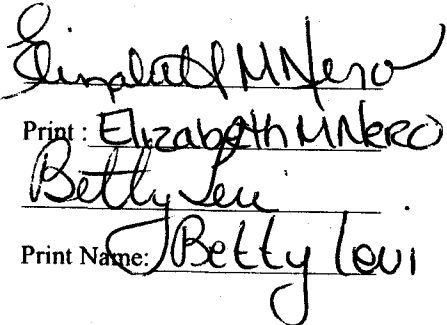 Elizabeth M Nero
Print : Elizabeth M Nero
Betty Levi
Print Name: Betty Levi